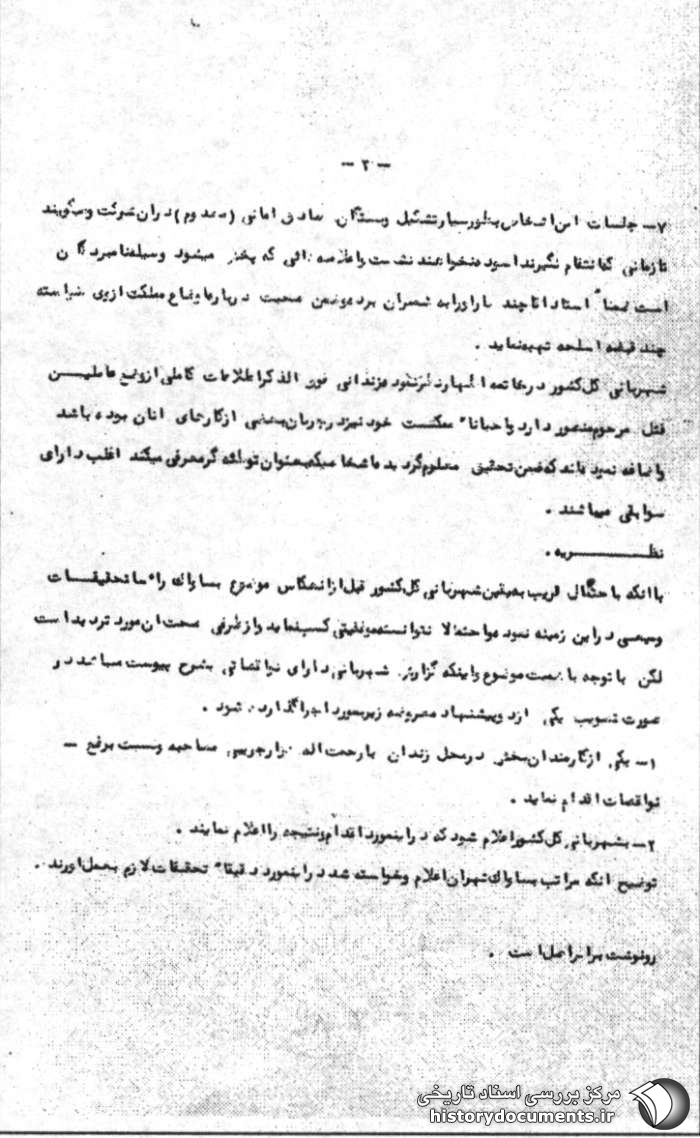 - ۲ -
۷- جلسات این اشخاص بطور سیار تشکیل وبستگان صادق امانی (معدوم) دران شرکت ومیگویند
تازمانی که انتقام نگیرند اسوده نخواهند نشست واعلامیه هائی که پخش میشود وسیله نامبردگان
است ضمنا" استاد انا چند بار اورا به شمیران برده وضمن صحبت درباره اوضاع مملکت ازوی خواسته
چند قبضه اسلحه تهیه نماید .
شهربانی کل کشور درخاتمه اظهارنظر نموده زندانی فوق الذکر اطلاعات کاملی ازوضع عاملیــن
قتل مرحوم منصور دارد واحیانا" ممکنست خود نیز درجریان بعضی ازکارهای انان بوده باشد
واضافه نموده اند که ضمن تحقیق معلوم گردید اشخاصیکه بعنوان توطئه گر معرفی میکند اغلب دارای
سوابقی میباشند .
نظـــــــریه .
باانکه باحتمال قریب بیقین شهربانی کل کشور قبل ازانعکاس موضوع بساواک راسا تحقیقــات
وسیعی دراین زمینه نموده واحتمالا نتوانسته موفقیتی کسب نماید وازطرفی صحت ان مورد تردید است
لکن باتوجه باهمیت موضوع واینکه گزارش شهربانی دارای نواقصاتی بشرح پیوست میباشد در
صورت تصویب یکی ازدوپیشنهاد معروضه زیر بمورد اجرا گذارده شود .
۱- یکی ازکارمندان بخش درمحل زندان با رحمت اله مصاحبه ونسبت برفع -
نواقصات اقدام نماید .
۲- بشهربانی کل کشور اعلام شود که دراینمورد اقدام ونتیجه را اعلام نمایند .
توضیح انکه مراتب بساواک تهران اعلام وخواسته شد دراینمورد دقیقا" تحقیقات لازم بعمل اورند .
رونوشت برابر اصل است .
مرکز بررسی اسناد تاریخی
historydocuments.ir